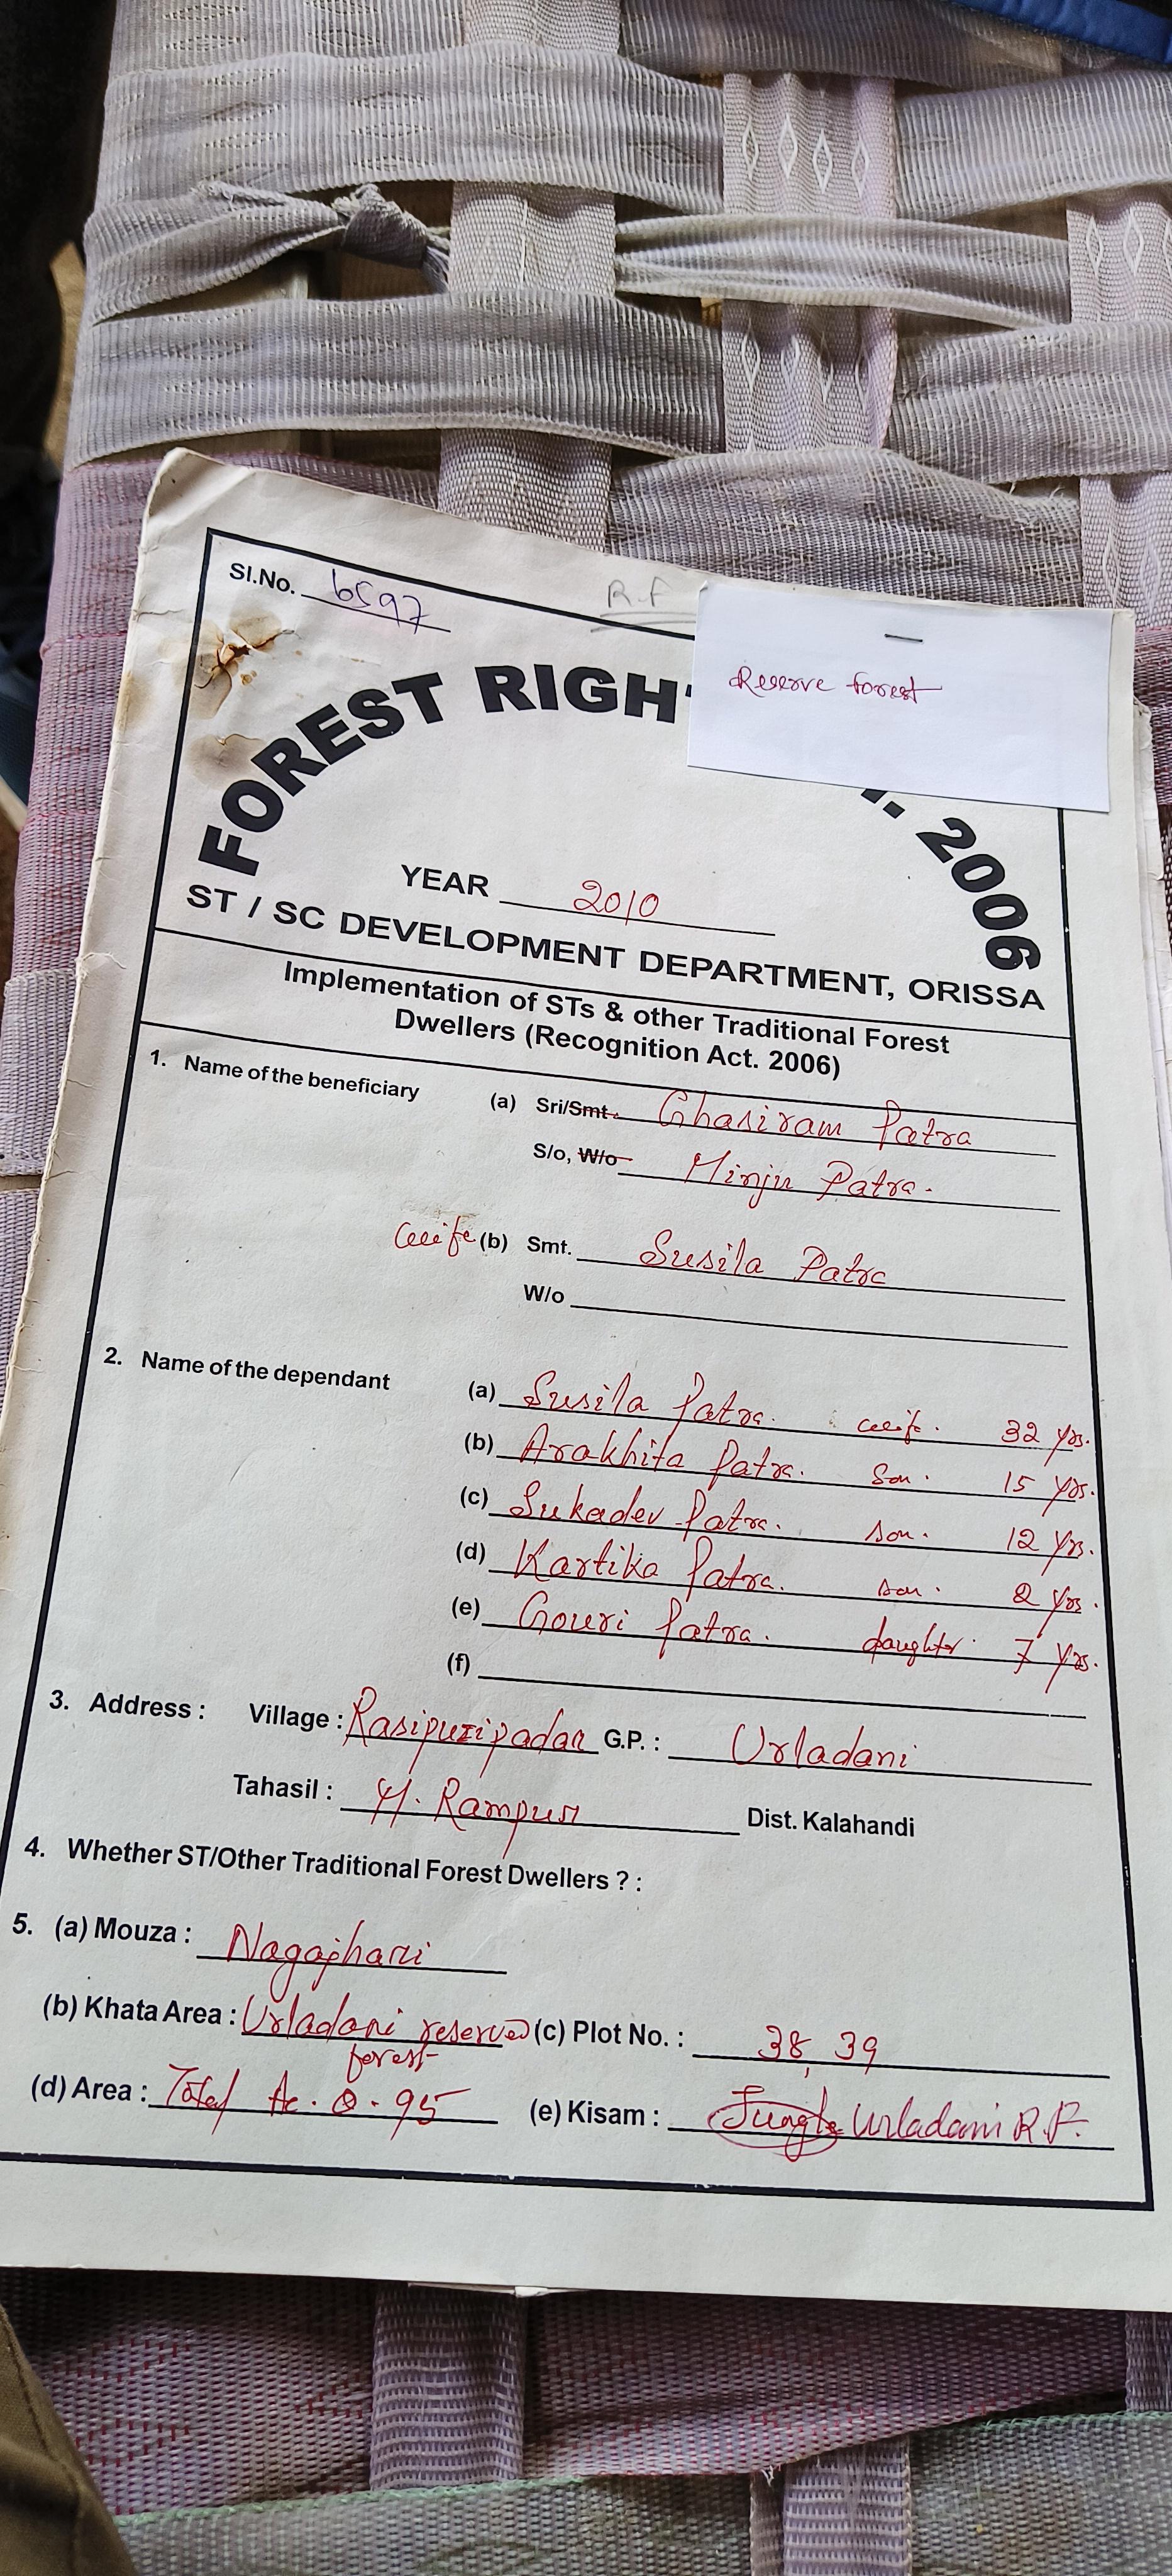 Sl.No. 6597
R.F
Reserve forest
FOREST RIGHT . 2006
YEAR 2010
ST / SC DEVELOPMENT DEPARTMENT, ORISSA
Implementation of STs & other Traditional Forest
Dwellers (Recognition Act. 2006)
1. Name of the beneficiary (a) Sri/Smt. Ghasiram Patra
S/o, W/o Minju Patra.
wife (b) Smt. Susila Patra
W/o
2. Name of the dependant
(a) Susila Patra. wife. 32 yrs.
(b) Arakhita Patra. Son. 15 yrs.
(c) Sukadev Patra. son. 12 yrs.
(d) Kartika Patra. son. 2 yrs.
(e) Gouri Patra. daughter. 7 yrs.
(f)
3. Address : Village : Rasipuripadar G.P. : Urladani
Tahasil : M. Rampur Dist. Kalahandi
4. Whether ST/Other Traditional Forest Dwellers ? :
5. (a) Mouza : Nagajhari
(b) Khata Area : Urladani reserved forest (c) Plot No. : 38, 39
(d) Area : Total Ac. 0.95 (e) Kisam : Jungle Urladani R.F.